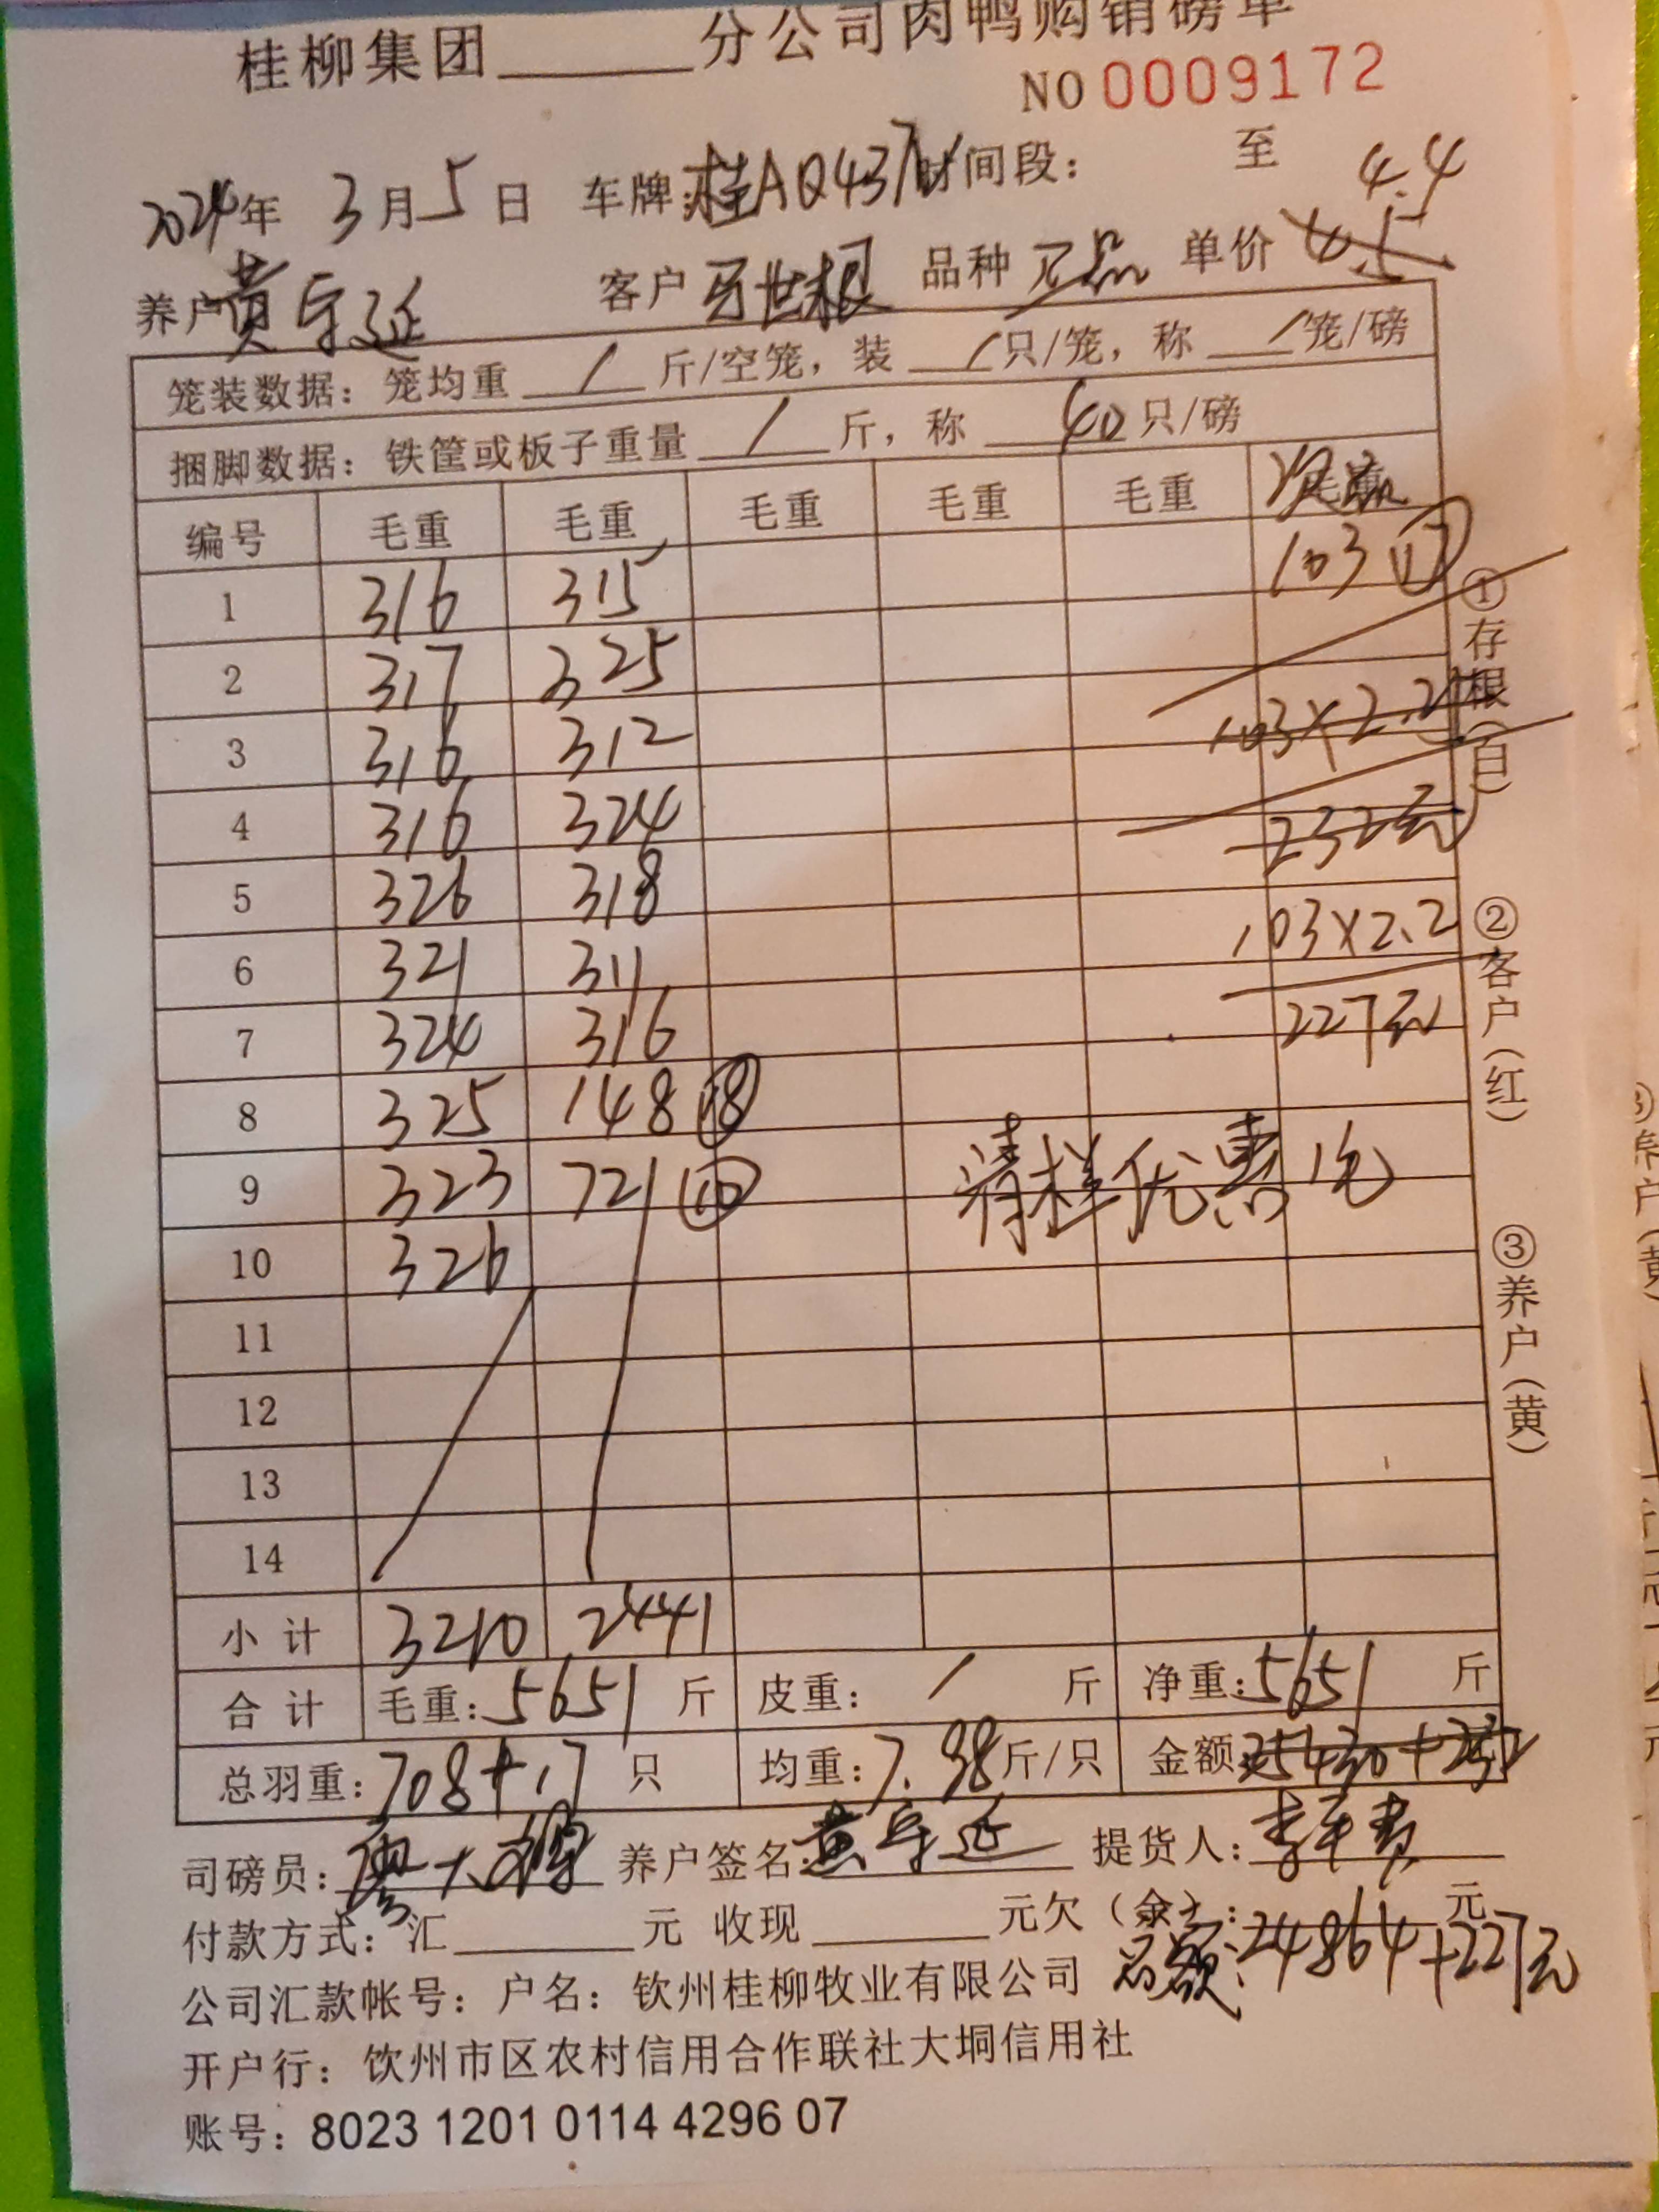 桂柳集团______分公司肉鸭购销磅单
NO 0009172
2024年 3月5日 车牌:桂AQ437 时间段: 至 4.4
养户黄宇延 客户 世根 品种 正品 单价 4.5
笼装数据: 笼均重 / 斤/空笼, 装 / 只/笼, 称 / 笼/磅
捆脚数据: 铁筐或板子重量 / 斤, 称 40 只/磅
编号 毛重 毛重 毛重 毛重 毛重 毛重
1 316 315 103 ⑰
2 317 325
3 316 312 103×2.25
4 316 324 232元
5 326 318
6 321 311 103×2.2
7 324 316 227元
8 325 148 ⑱
9 323 72 ⑩ 清栏优惠1毛
10 326
11
12
13
14
小计 3210 2441
合计 毛重:5651 斤 皮重: / 斤 净重:5651 斤
总羽重:708+17 只 均重:7.98斤/只 金额:25430+232
司磅员:廖大 养户签名:黄宇延 提货人:李
付款方式: 汇______元 收现______元欠(余): 元
总额:24864+227元
公司汇款帐号: 户名: 钦州桂柳牧业有限公司
开户行: 钦州市区农村信用合作联社大垌信用社
账号: 8023 1201 0114 4296 07
①存根(白) ②客户(红) ③养户(黄)